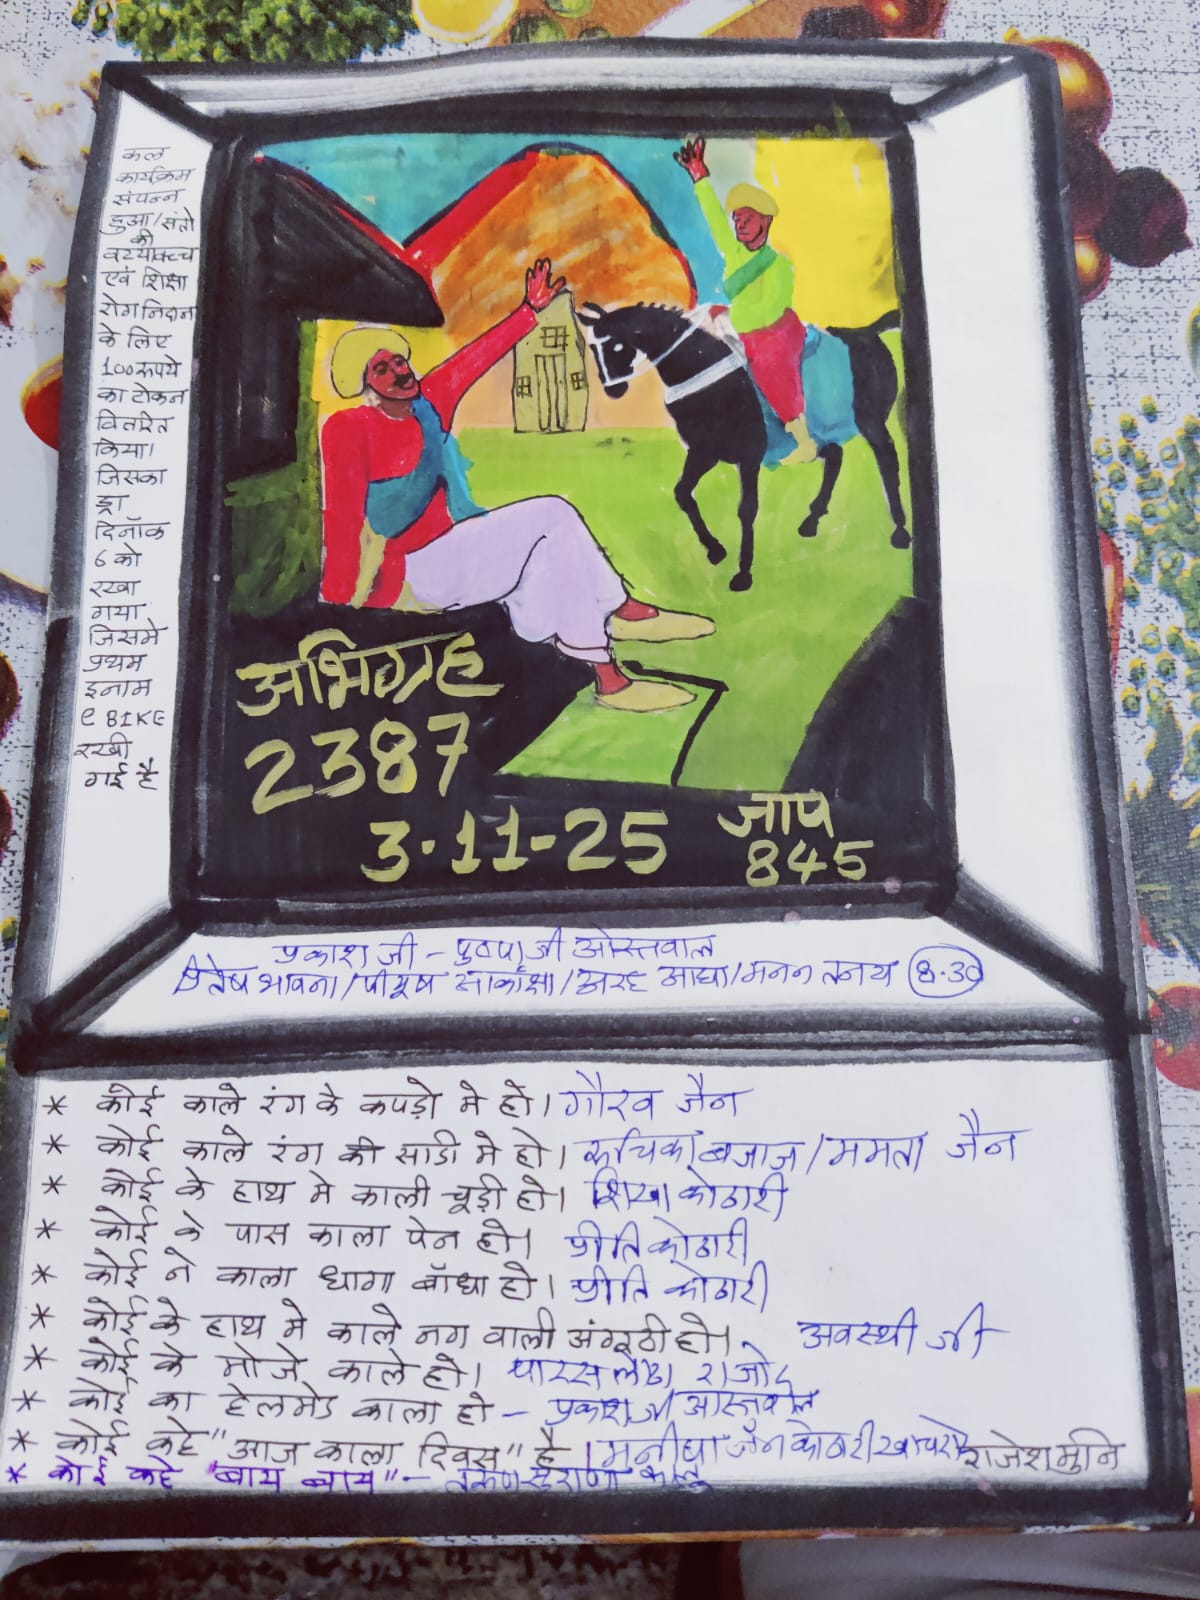 कल
कार्यक्रम
संपन्न
हुआ/संतो
की
एवं शिक्षा
रोग निदान
के लिए
100 रूपये
का टोकन
वितरित
किया।
जिसका
ड्रा
दिनॉक
6 को
रखा
गया
जिसमे
प्रथम
इनाम
e BIKE
रखी
गई है
अभिग्रह
2387
3-11-25
जाप
845
प्रकाश जी - पुष्पा जी ओस्तवाल
भावना/पीयूष साकांक्षा/अरह आद्या/मनन तनय 8-30
* कोई काले रंग के कपड़ो मे हो। गौरव जैन
* कोई काले रंग की साडी मे हो। रूचिका बजाज/ममता जैन
* कोई के हाथ मे काली चूड़ी हो। शिखा कोठारी
* कोई के पास काला पेन हो। प्रीति कोठारी
* कोई ने काला धागा बॉधा हो। प्रीति कोठारी
* कोई के हाथ मे काले नग वाली अंगूठी हो। अवस्थी जी
* कोई के मोजे काले हो। पारस लोढा राजोद
* कोई का हेलमेड काला हो - प्रकाश जी ओस्तवाल
* कोई कहे "आज काला दिवस" है। मनीषा जैन कोठारी राजेश मुनि
* कोई कहे "बाय बाय" - सुराणा